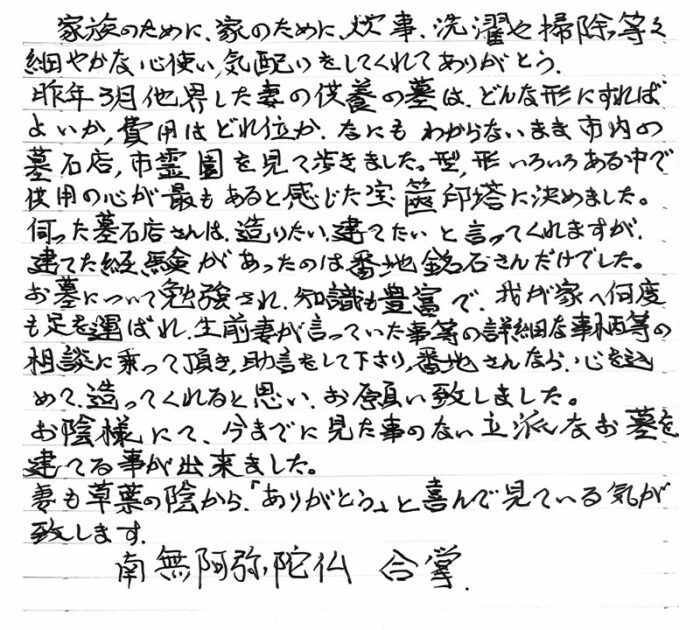 家族のために、家のために、炊事、洗濯や掃除等々
細やかな心使い、気配りをしてくれてありがとう。
昨年3月他界した妻の供養の墓は、どんな形にすれば
よいか、費用はどれ位か、なにもわからないまま市内の
墓石店、市霊園を見て歩きました。型、形いろいろある中で
供用の心が最もあると感じた宝篋印塔に決めました。
伺った墓石店さんは、造りたい、建てたいと言ってくれますが、
建てた経験があったのは番地銘石さんだけでした。
お墓について勉強され、知識も豊富で、我が家へ何度
も足を運ばれ、生前妻が言っていた事等の詳細な事柄等の
相談に乗って頂き、助言をして下さり、番地さんなら、心を込
めて、造ってくれると思い、お願い致しました。
お陰様にて、今までに見た事のない立派なお墓を
建てる事が出来ました。
妻も草葉の陰から、「ありがとう」と喜んで見ている気が
致します。
南無阿弥陀仏 合掌.